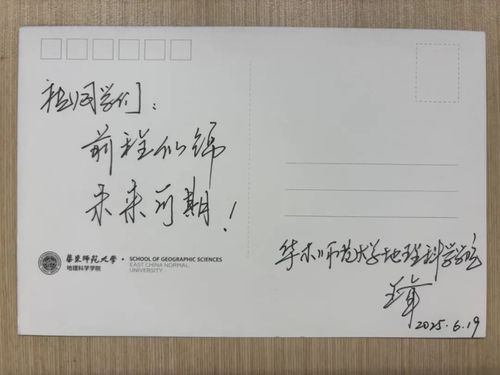 祝同学们:
前程似锦
未来可期!
華東師范大學
地理科学学院
SCHOOL OF GEOGRAPHIC SCIENCES
EAST CHINA NORMAL
UNIVERSITY
华东师范大学地理科学学院
2025.6.19